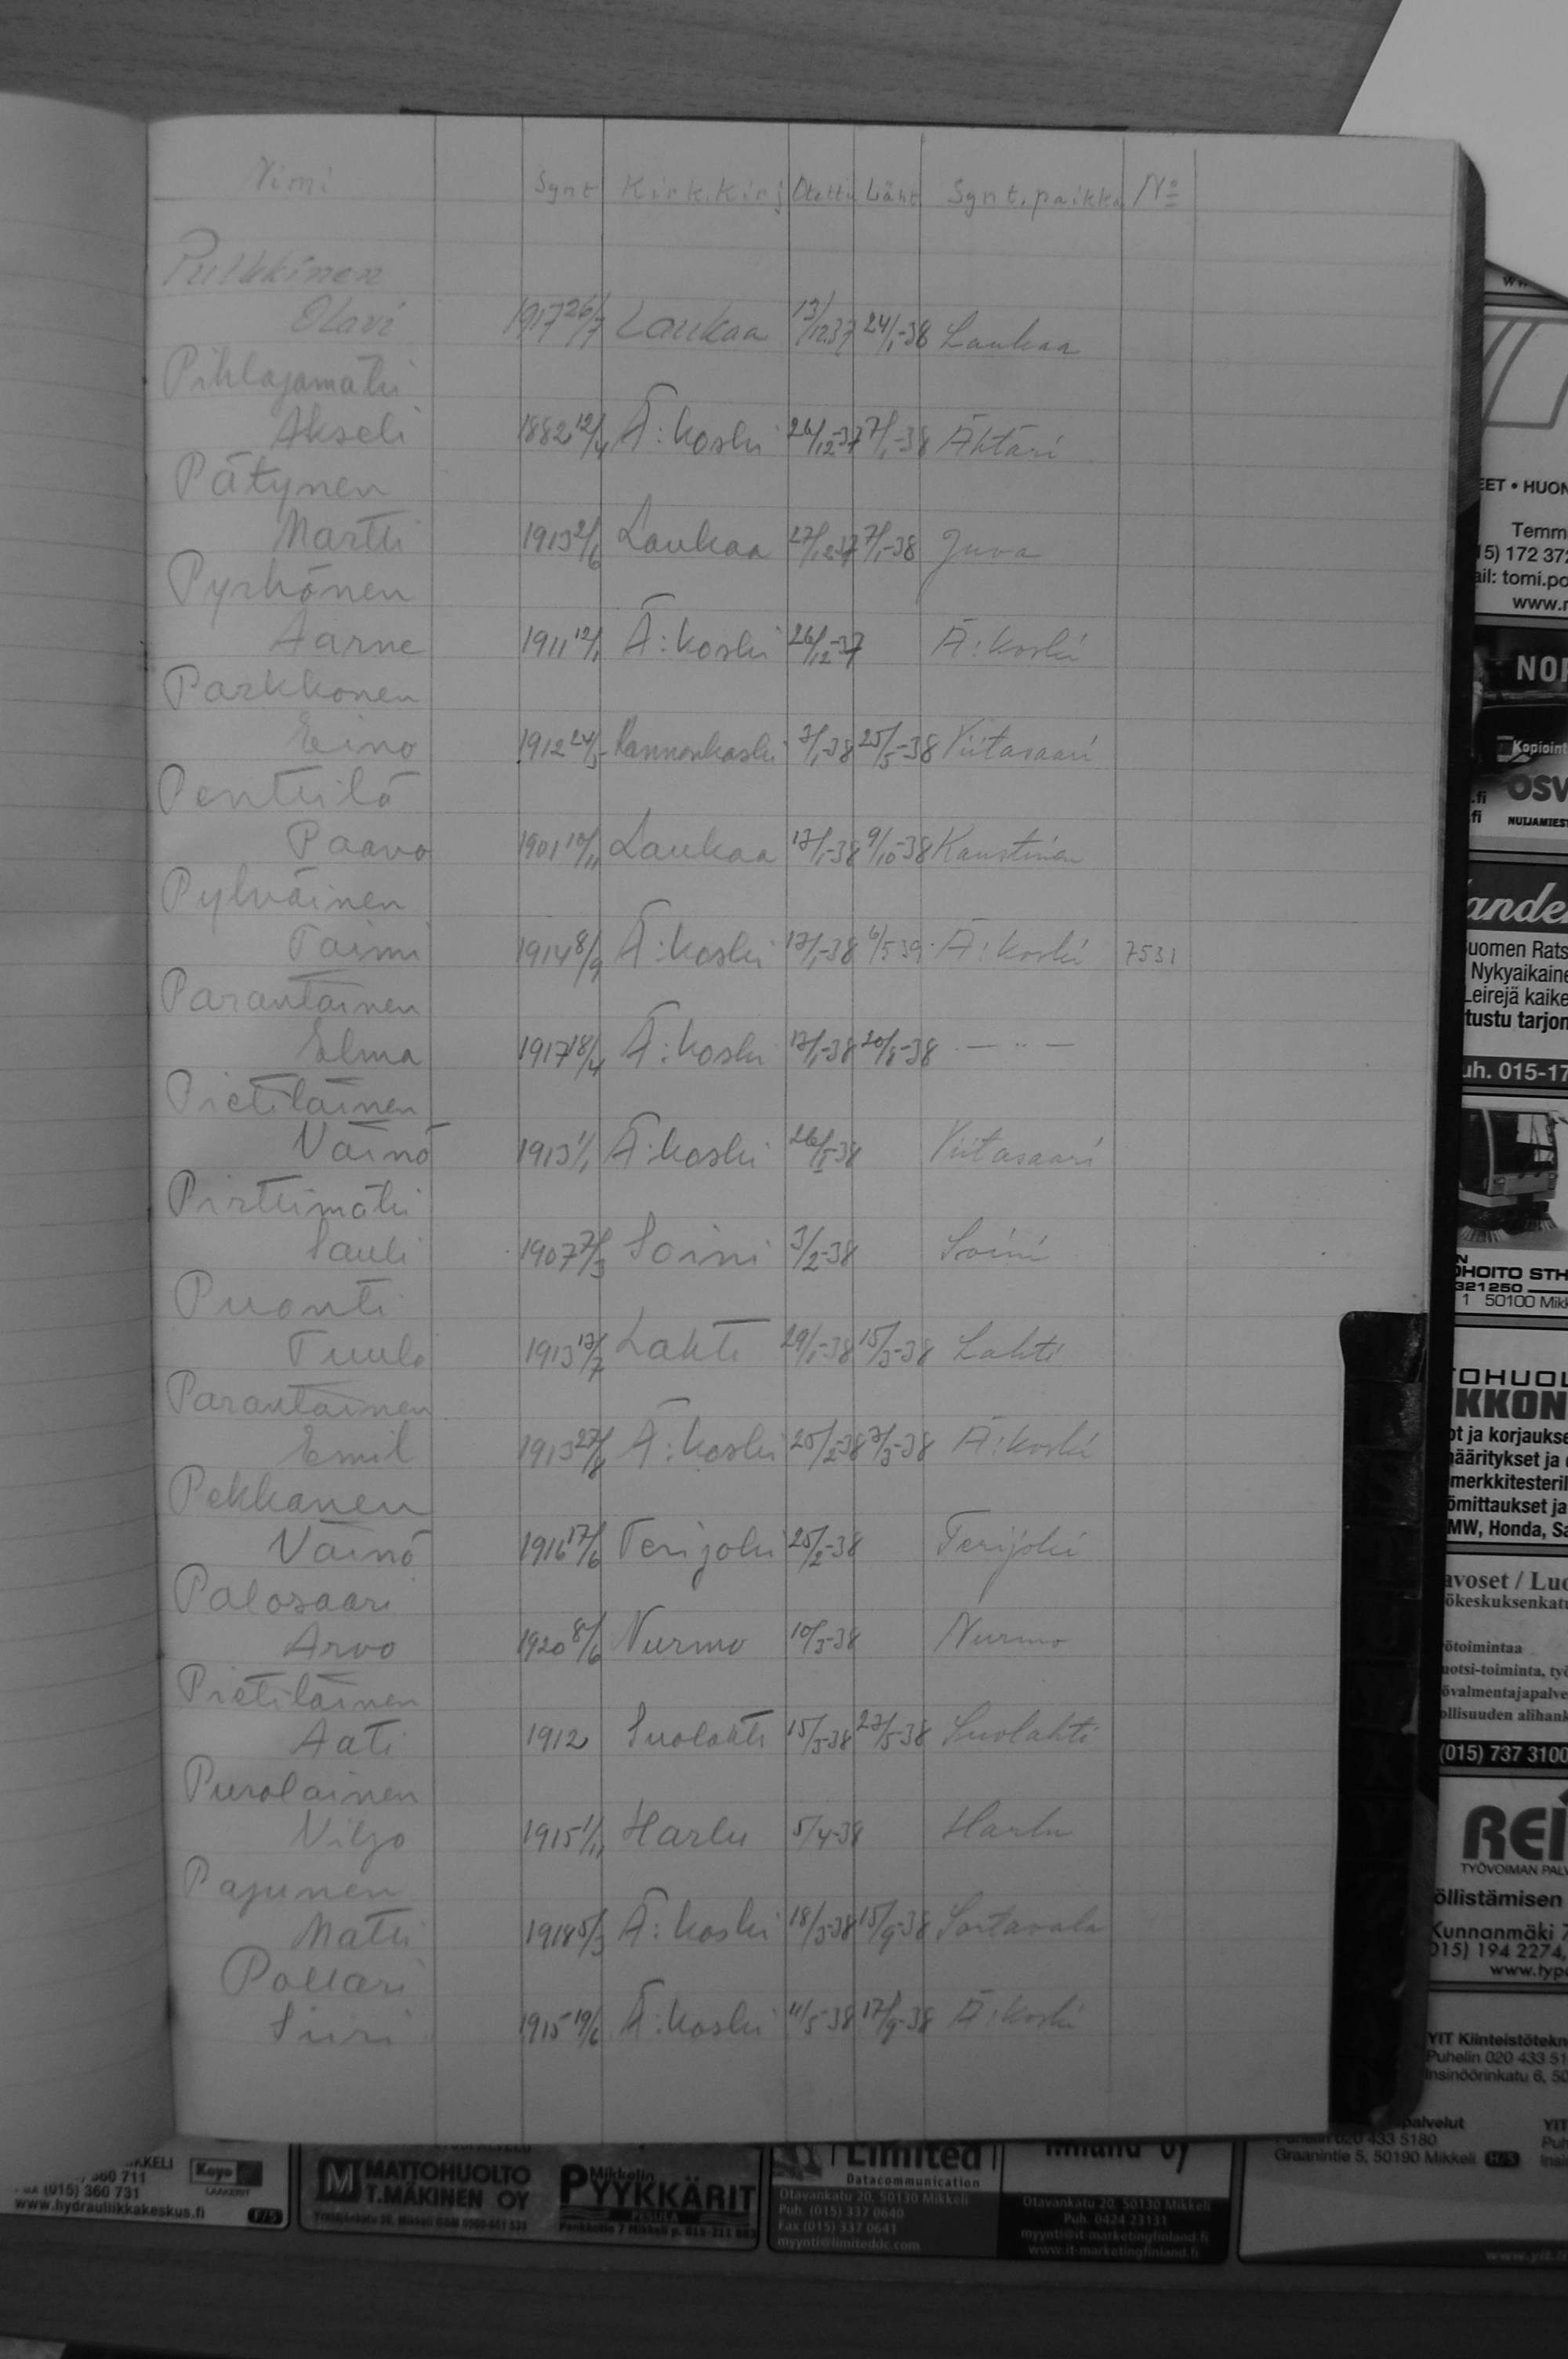 Nimi Synt Kirk.kirj Otettu Läht Synt.paikka No
Pulkkinen
Olavi 1917 26/7 Laukaa 13/12.37 24/1-38 Laukaa
Pihlajamäki
Akseli 1882 12/4 Ä:koski 26/12-37 7/1-38 Ähtäri
Pätynen
Martti 1913 2/6 Laukaa 27/12-37 7/1-38 Juva
Pyrhönen
Aarne 1911 12/1 Ä:koski 26/12-37 Ä:koski
Parkkonen
Eino 1912 24/5 Kannonkoski 7/1-38 25/5-38 Viitasaari
Penttilä
Paavo 1901 10/11 Laukaa 17/1-38 9/10-38 Kaustinen
Pylväinen
Taimi 1914 8/9 Ä:koski 17/1-38 6/5 39 Ä:koski 7531
Parantainen
Elma 1917 18/4 Ä:koski 17/1-38 20/8-38 — " —
Pietiläinen
Väinö 1913 1/1 Ä:koski 26/1-38 Viitasaari
Pirttimäki
Sauli 1907 7/3 Soini 3/2-38 Soini
Puonti
Tuulo 1913 17/7 Lahti 29/1-38 15/3-38 Lahti
Parantainen
Emil 1913 27/8 Ä:koski 25/2-38 7/3-38 Ä:koski
Pekkanen
Väinö 1916 17/6 Terijoki 25/2-38 Terijoki
Palosaari
Arvo 1920 8/6 Nurmo 10/3-38 Nurmo
Pietiläinen
Aati 1912 Suolahti 15/3-38 27/5-38 Suolahti
Purolainen
Viljo 1915 1/11 Harlu 5/4-38 Harlu
Pajunen
Matti 1918 5/3 Ä:koski 18/3-38 15/9-38 Sortavala
Pollari
Siiri 1915 19/6 Ä:koski 11/5-38 17/9-38 Ä:koski
EET • HUON
Temm
15) 172 37
ail: tomi.po
NOR
Kopioint
OSV
.fi
fi NUIJAMIEST
ande
uomen Rats
Nykyaikaine
Leirejä kaike
tustu tarjon
uh. 015-17
OHOITO STH
321250
1 50100 Mikk
OHUOL
KKON
ot ja korjaukse
määritykset ja
merkkitesteril
ömittaukset ja
MW, Honda, Sa
avoset / Luo
ökeskuksenkatu
ötoimintaa
uotsi-toiminta, työ
övalmentajapalve
ollisuuden alihank
(015) 737 3100
REI
TYÖVOIMAN PALV
öllistämisen
Kunnanmäki 7
015) 194 2274,
www.typ
YIT Kiinteistötekn
Puhelin 020 433 51
Insinöörinkatu 6, 50
palvelut
Puhelin 020 433 5180
Graanintie 5, 50190 Mikkeli H/5
KKELI
360 711
(015) 360 731
www.hydrauliikkakeskus.fi
F/5
Koyo
LAAKERIT
MATTOHUOLTO
T.MÄKINEN OY
Mikkelin
PYYKKÄRIT
PESULA
Limited
Datacommunication
Otavankatu 20, 50130 Mikkeli
Puh. (015) 337 0640
Fax (015) 337 0641
myynti@limiteddc.com
Otavankatu 20, 50130 Mikkeli
Puh. 0424 23131
myynti@it-marketingfinland.fi
www.it-marketingfinland.fi